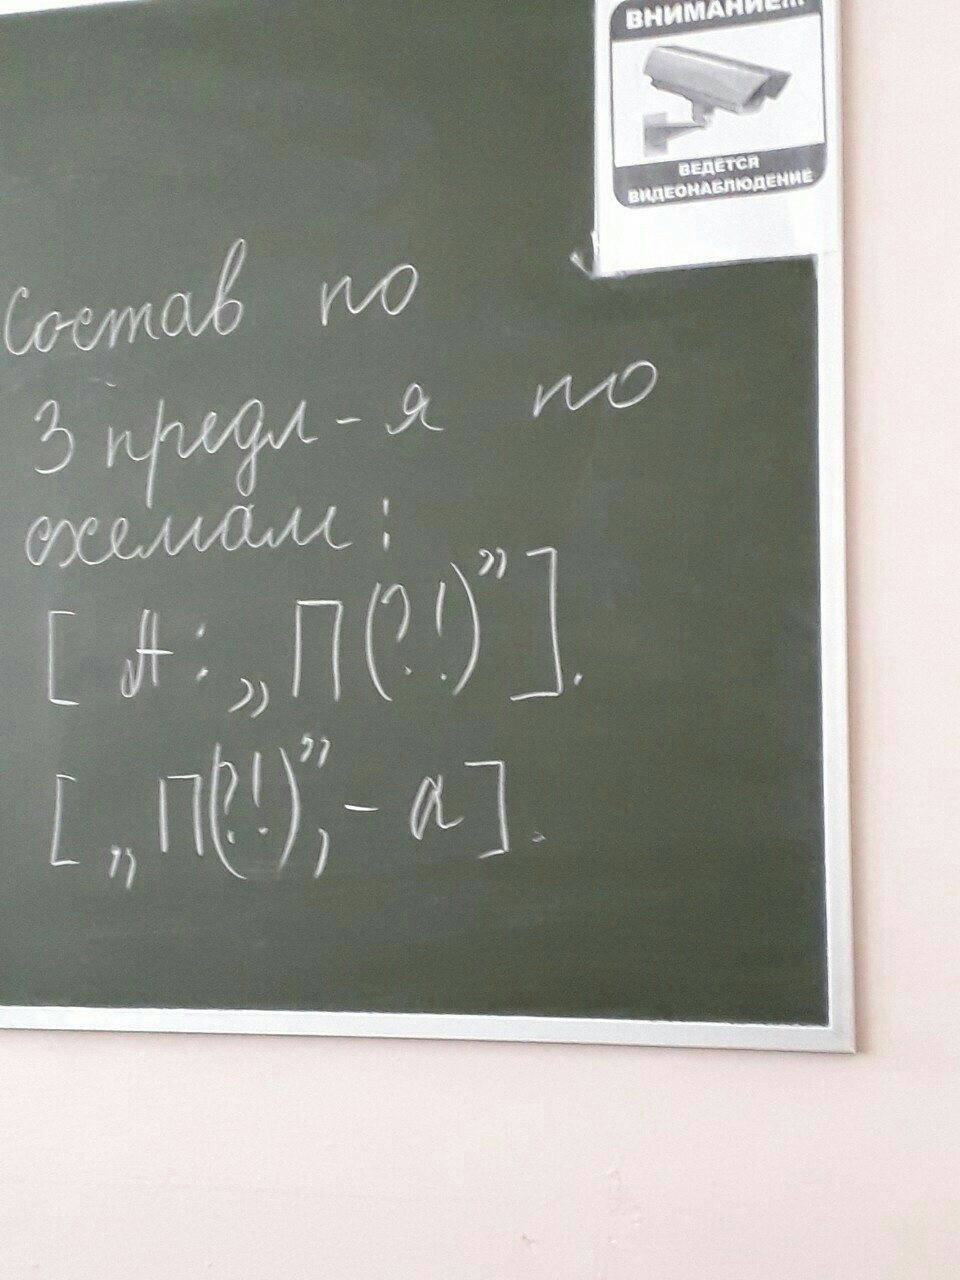 ВНИМАНИЕ!!!
ВЕДЁТСЯ
ВИДЕОНАБЛЮДЕНИЕ
Состав по
3 предл-я по
схемам:
[ А: „П(?!)” ].
[ „П(?!)”, - а ].